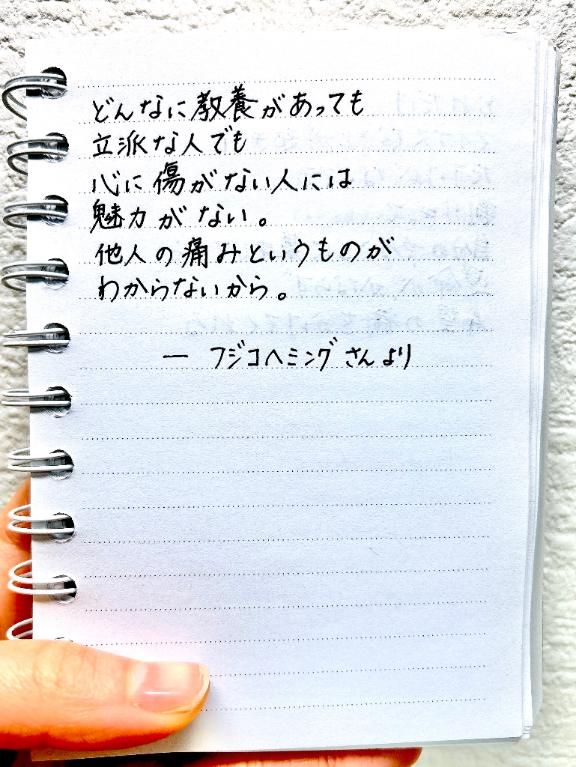 どんなに教養があっても
立派な人でも
心に傷がない人には
魅力がない。
他人の痛みというものが
わからないから。
— フジコヘミングさんより